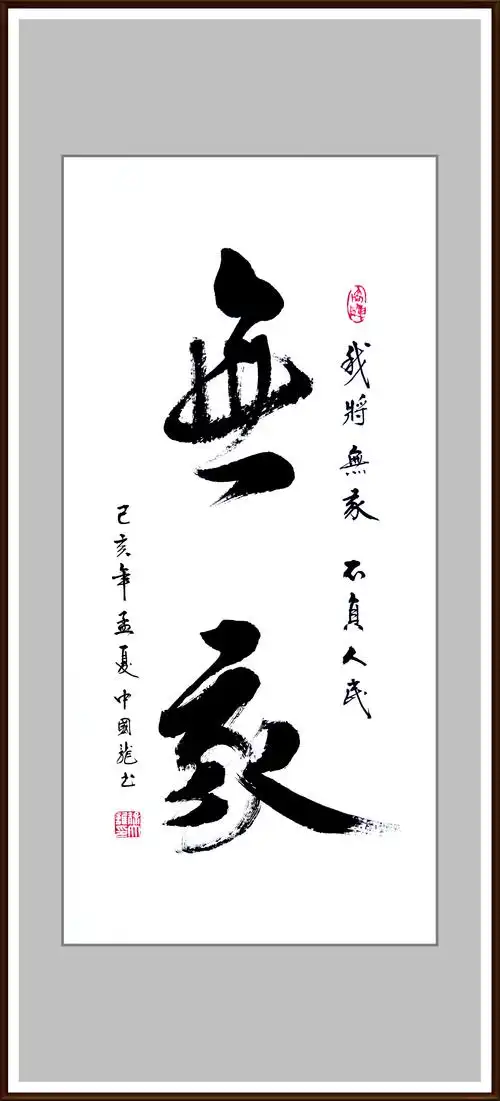 我將無我 不負人民
無我
己亥年孟夏中國龍书